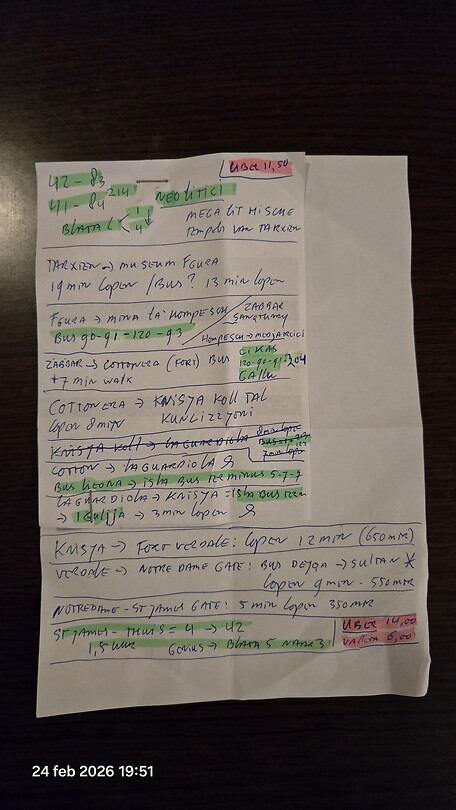 42 - 83
UBER 11,50
41 - 84 214
NEOLITICI
BLATA L 1 4
MEGALITHISCHE
TEMPELS VAN TARXIEN
TARXIEN → MUSEUM FGURA
19 min lopen / BUS? 13 min lopen
FGURA → MINA TA' HOMPESCH
ZABBAR
SANCTUARY
BUS 90-91-120-93
ZABBAR → COTTONERA (FORT) BUS
120-90-91-
204
+ 7 min WALK
COTTONERA → KNISJA KOLL TAL
lopen 8 min
KUNCIZZJONI
KNISYA KOLL → LA GUARDIOLA
COTTON → LA GUARDIOLA
BUS → ISLA BUS TERMINUS 5-7-7
LA GUARDIOLA → KNISYA = ISLA BUS
→ 1 → 3 min lopen
KNISYA → FORT VERDALE: lopen 12 min (650 MTR)
VERDALE → NOTRE DAME GATE: BUS DEJQA → SULTAN *
lopen 9 min - 550 MTR
NOTREDAME - ST JAMES GATE: 5 min lopen 350 MTR
ST JAMES - THUIS = 4 → 42
UBER 14,00
1,5 UUR
GENIUS → BLATA 5 NAAR 3
VALLTA 6,00
24 feb 2026 19:51